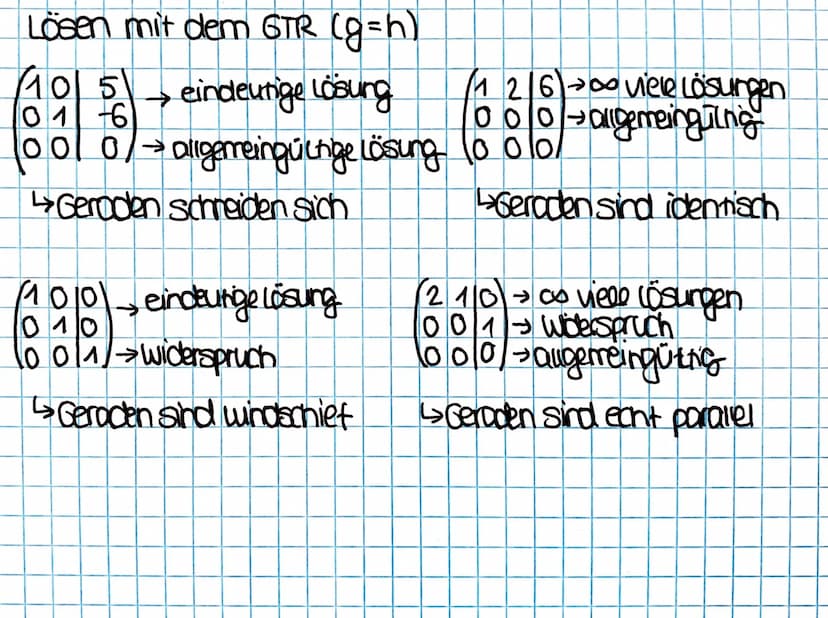 Lösen mit dem GTR (g=h)
(1 0 | 5) → eindeutige Lösung
(0 1 | -6)
(0 0 | 0) → allgemeingültige Lösung
↳ Geraden schneiden sich
(1 2 | 6) → ∞ viele Lösungen
(0 0 | 0) → allgemeingültig
(0 0 | 0)
↳ Geraden sind identisch
(1 0 | 0) → eindeutige Lösung
(0 1 | 0)
(0 0 | 1) → Widerspruch
↳ Geraden sind windschief
(2 1 | 0) → ∞ viele Lösungen
(0 0 | 1) → Widerspruch
(0 0 | 0) → allgemeingültig
↳ Geraden sind echt parallel